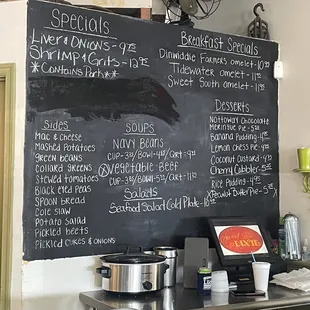 Specials
Liver & Onions - 9.95
Shrimp & Grits - 12.95
*Contains Pork**
Breakfast Specials
Dinwiddie Farmers omelet - 10.
Tidewater omelet - 11.
Sweet South omelet - 9.
Sides
Mac & Cheese
Mashed Potatoes
Green Beans
Collard Greens
Stewed Tomatoes
Black eyed Peas
Spoon bread
Cole Slaw
Potato Salad
Pickled beets
Pickled Cukes & Onions
Soups
Navy Beans
Cup - 3.95/Bowl - 4.95/Qrt - 9.
Vegetable Beef
Cup - 3.95/Bowl - 4.95/Qrt - 11.
Salads
Seafood Salad Cold Plate -
Desserts
Nottoway Chocolate
Meringue Pie -
Banana Pudding -
Lemon chess Pie -
Coconut Custard -
Cherry Cobbler -
Rice Pudding -
Peanut Butter Pie -
DIXIE